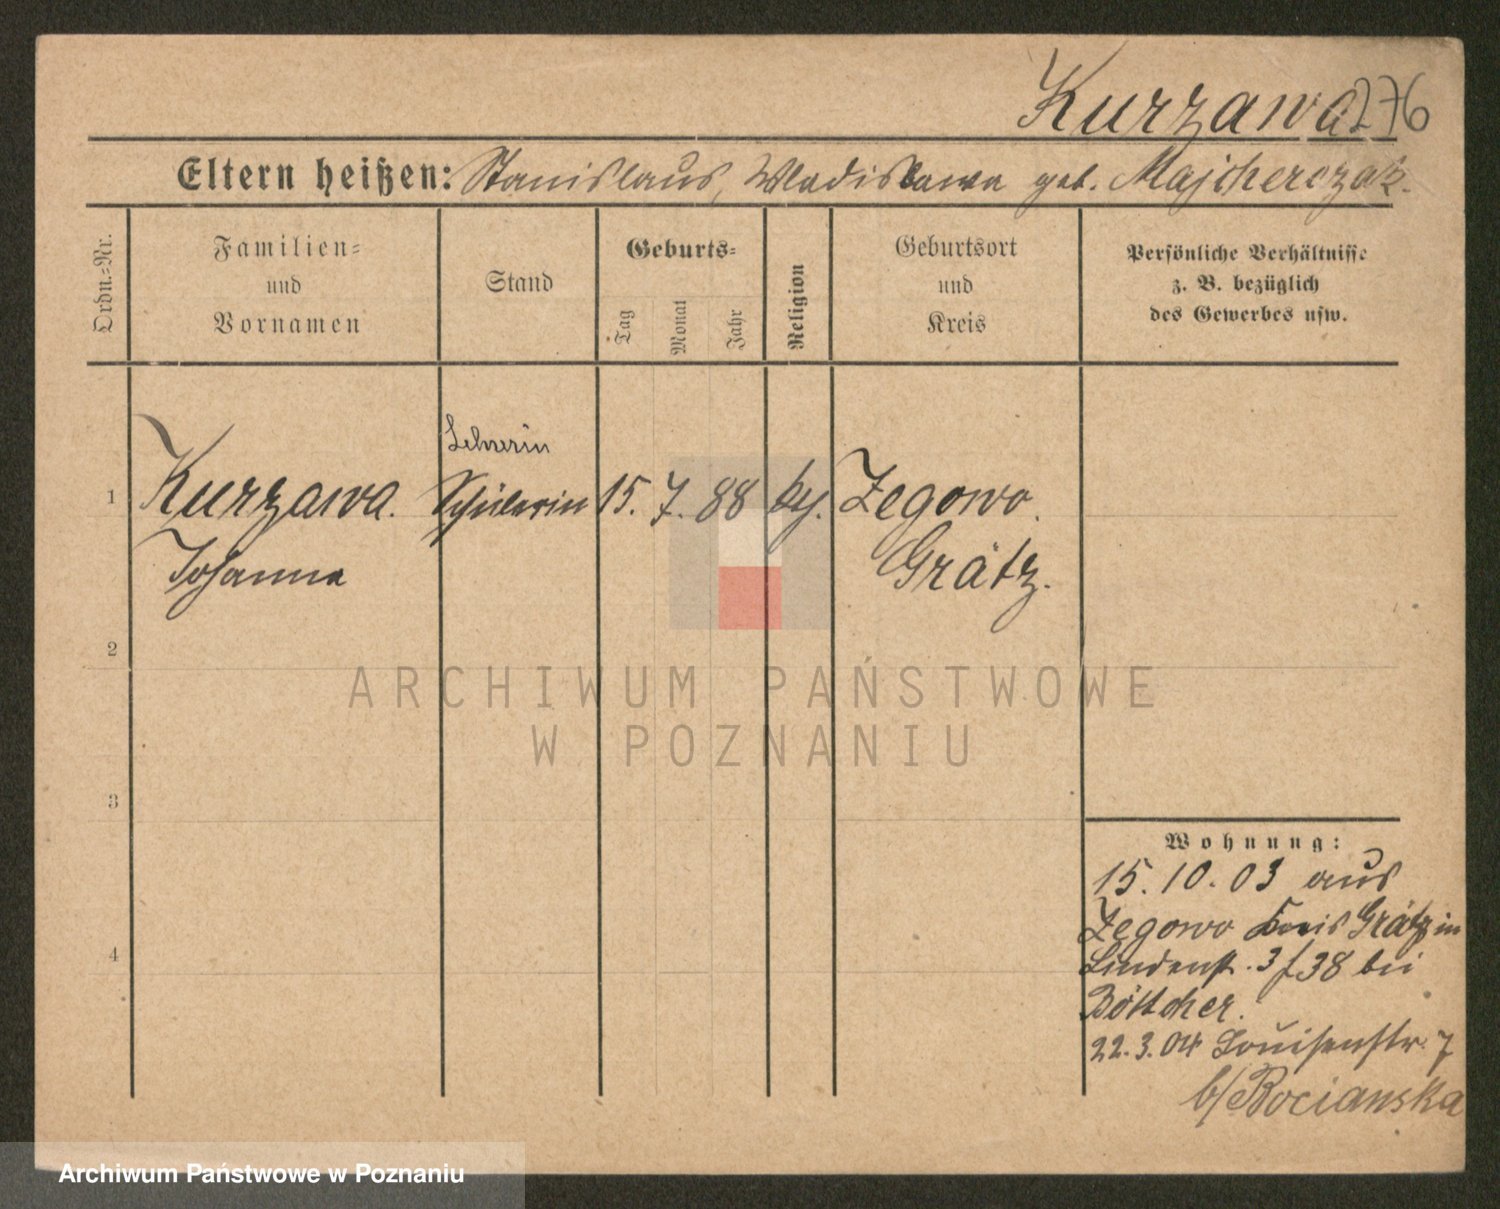 Kurzawa 276
Eltern heißen: Stanislaus, Wladislawa geb. Majcherczak.
Ordn.=Nr.
Familien=
und
Vornamen
Stand
Geburts=
Tag
Monat
Jahr
Religion
Geburtsort
und
Kreis
Persönliche Verhältnisse
z. B. bezüglich
des Gewerbes usw.
Lehrerin
1 Kurzawa. Schülerin 15. 7. 88 Zegowo.
Johanna Grätz.
2
3
4
Wohnung:
15.10.03 aus
Zegowo Kreis Grätz in
Lindenst. 3 f 38 bei
Böttcher.
22.3.04 Louisenstr. 7
b/Bocianska
ARCHIWUM PAŃSTWOWE
W POZNANIU
Archiwum Państwowe w Poznaniu